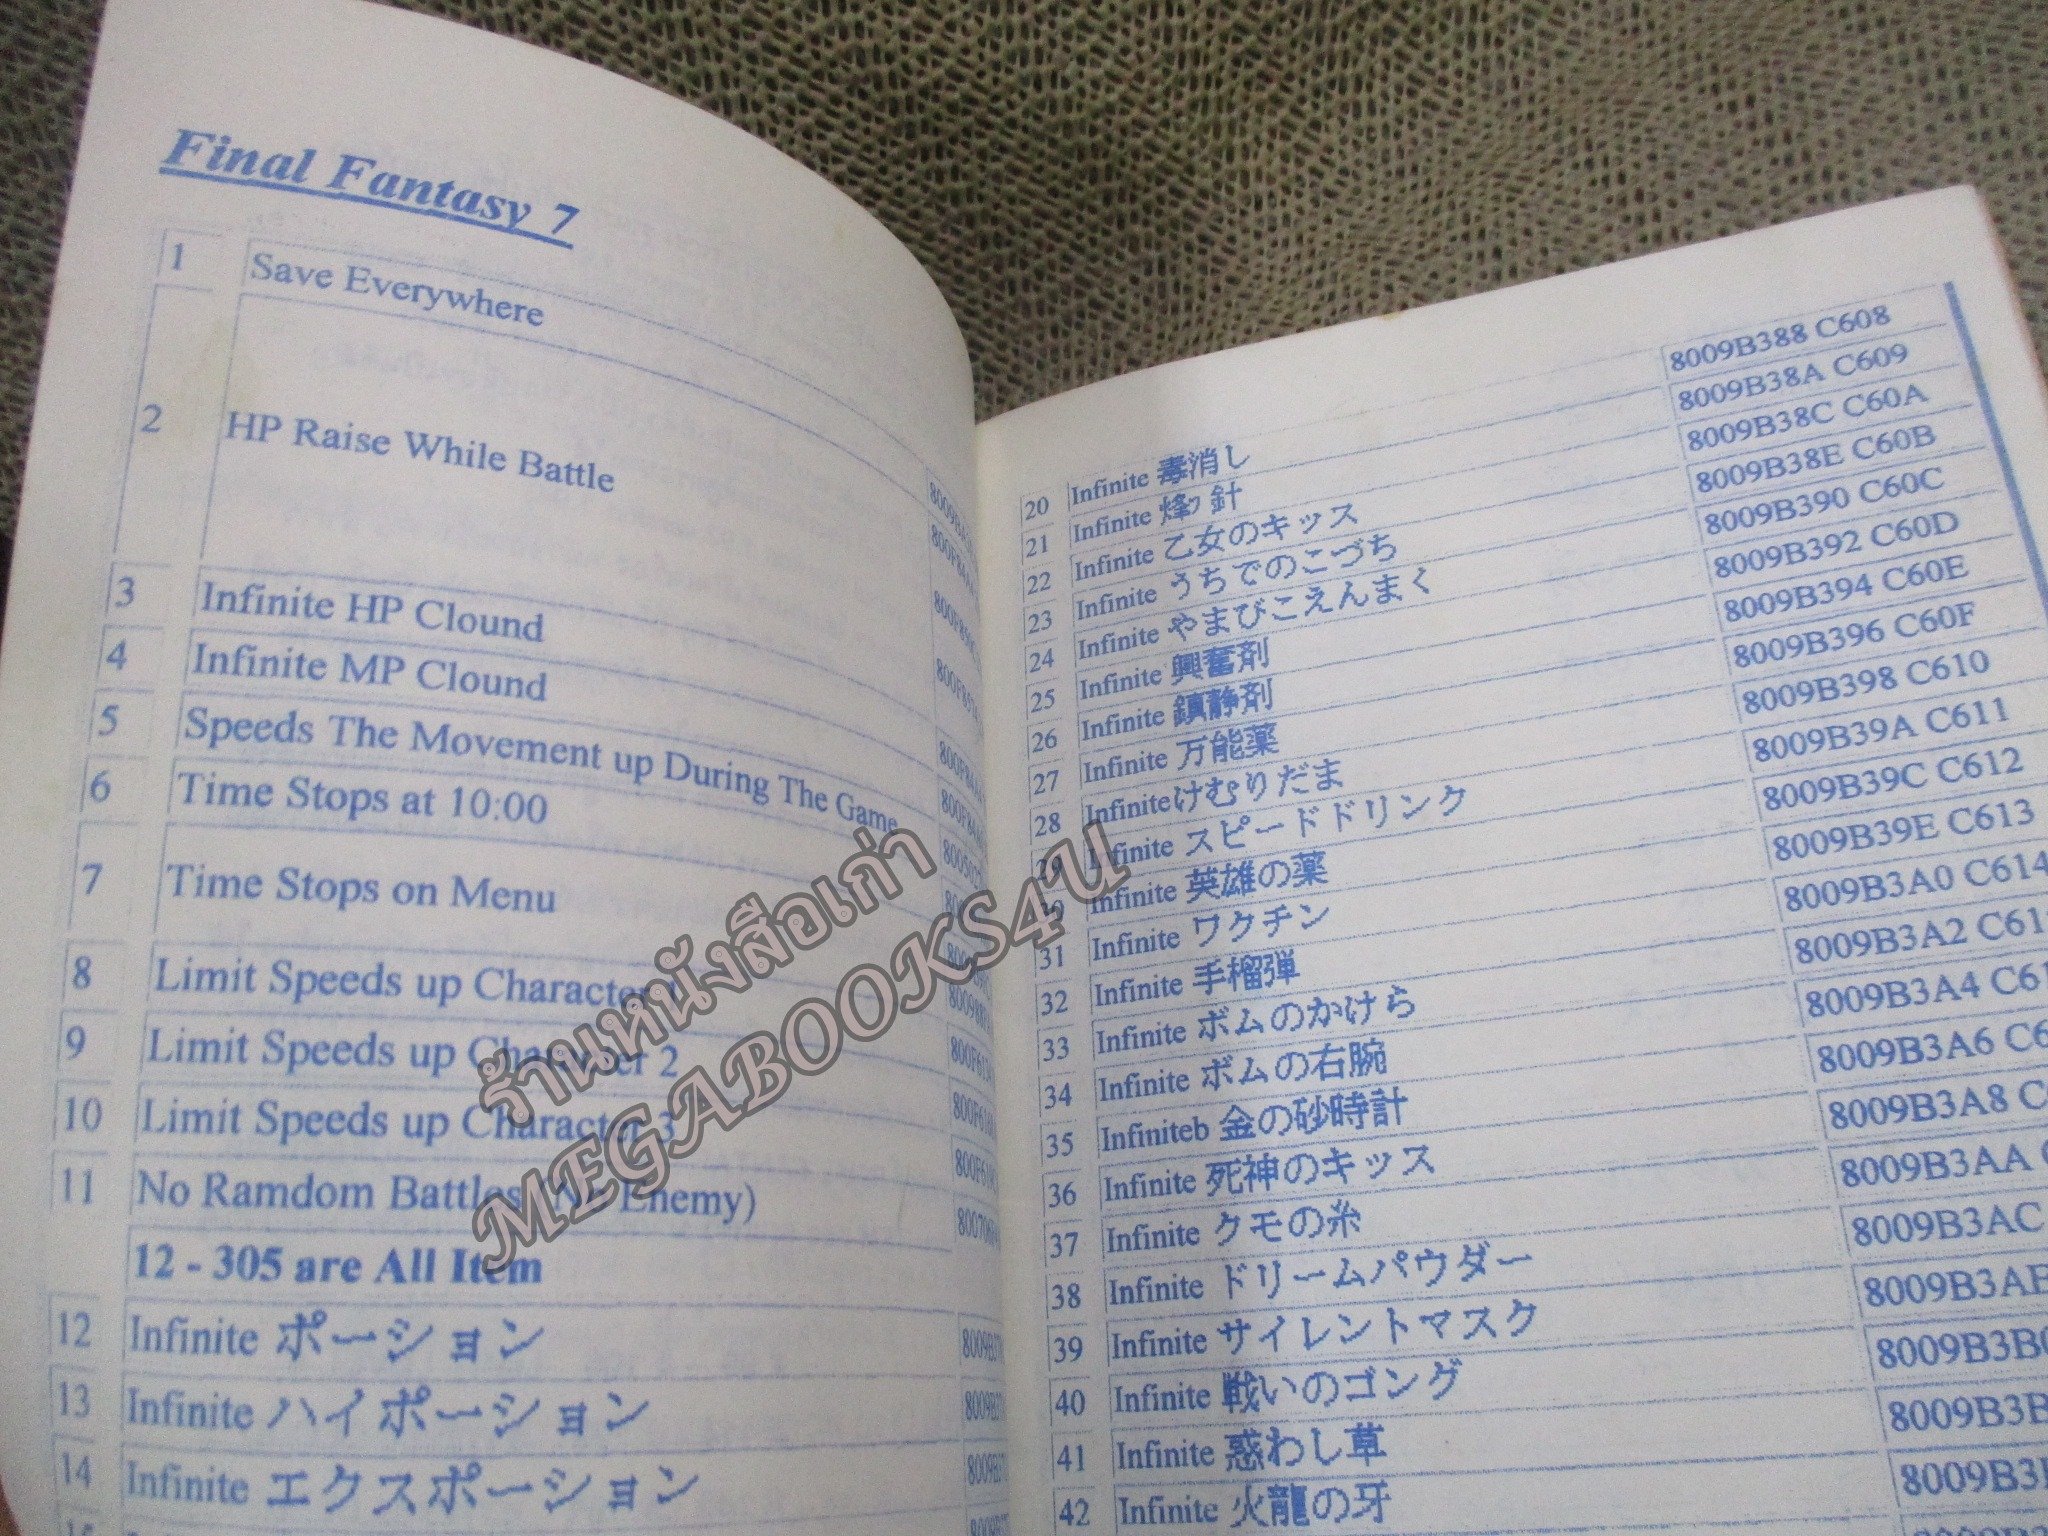 Final Fantasy 7
1 Save Everywhere
2 HP Raise While Battle
3 Infinite HP Clound
4 Infinite MP Clound
5 Speeds The Movement up During The Game
6 Time Stops at 10:00
7 Time Stops on Menu
8 Limit Speeds up Character
9 Limit Speeds up Character 2
10 Limit Speeds up Character 3
11 No Ramdom Battles (No Enemy)
12 - 305 are All Item
12 Infinite ポーション
13 Infinite ハイポーション
14 Infinite エクスポーション
20 Infinite 毒消し 8009B388 C608
21 Infinite 針 8009B38A C609
22 Infinite 乙女のキッス 8009B38C C60A
23 Infinite うちでのこづち 8009B38E C60B
24 Infinite やまびこえんまく 8009B390 C60C
25 Infinite 興奮剤 8009B392 C60D
26 Infinite 鎮静剤 8009B394 C60E
27 Infinite 万能薬 8009B396 C60F
28 Infiniteけむりだま 8009B398 C610
29 Infinite スピードドリンク 8009B39A C611
30 Infinite 英雄の薬 8009B39C C612
31 Infinite ワクチン 8009B39E C613
32 Infinite 手榴弾 8009B3A0 C614
33 Infinite ボムのかけら 8009B3A2
34 Infinite ボムの右腕 8009B3A4
35 Infiniteb 金の砂時計 8009B3A6
36 Infinite 死神のキッス 8009B3A8
37 Infinite クモの糸 8009B3AA
38 Infinite ドリームパウダー 8009B3AC
39 Infinite サイレントマスク
40 Infinite 戦いのゴング
41 Infinite 惑わし草
42 Infinite 火龍の牙
ร้านหนังสือเก่า
MEGABOOKS4U